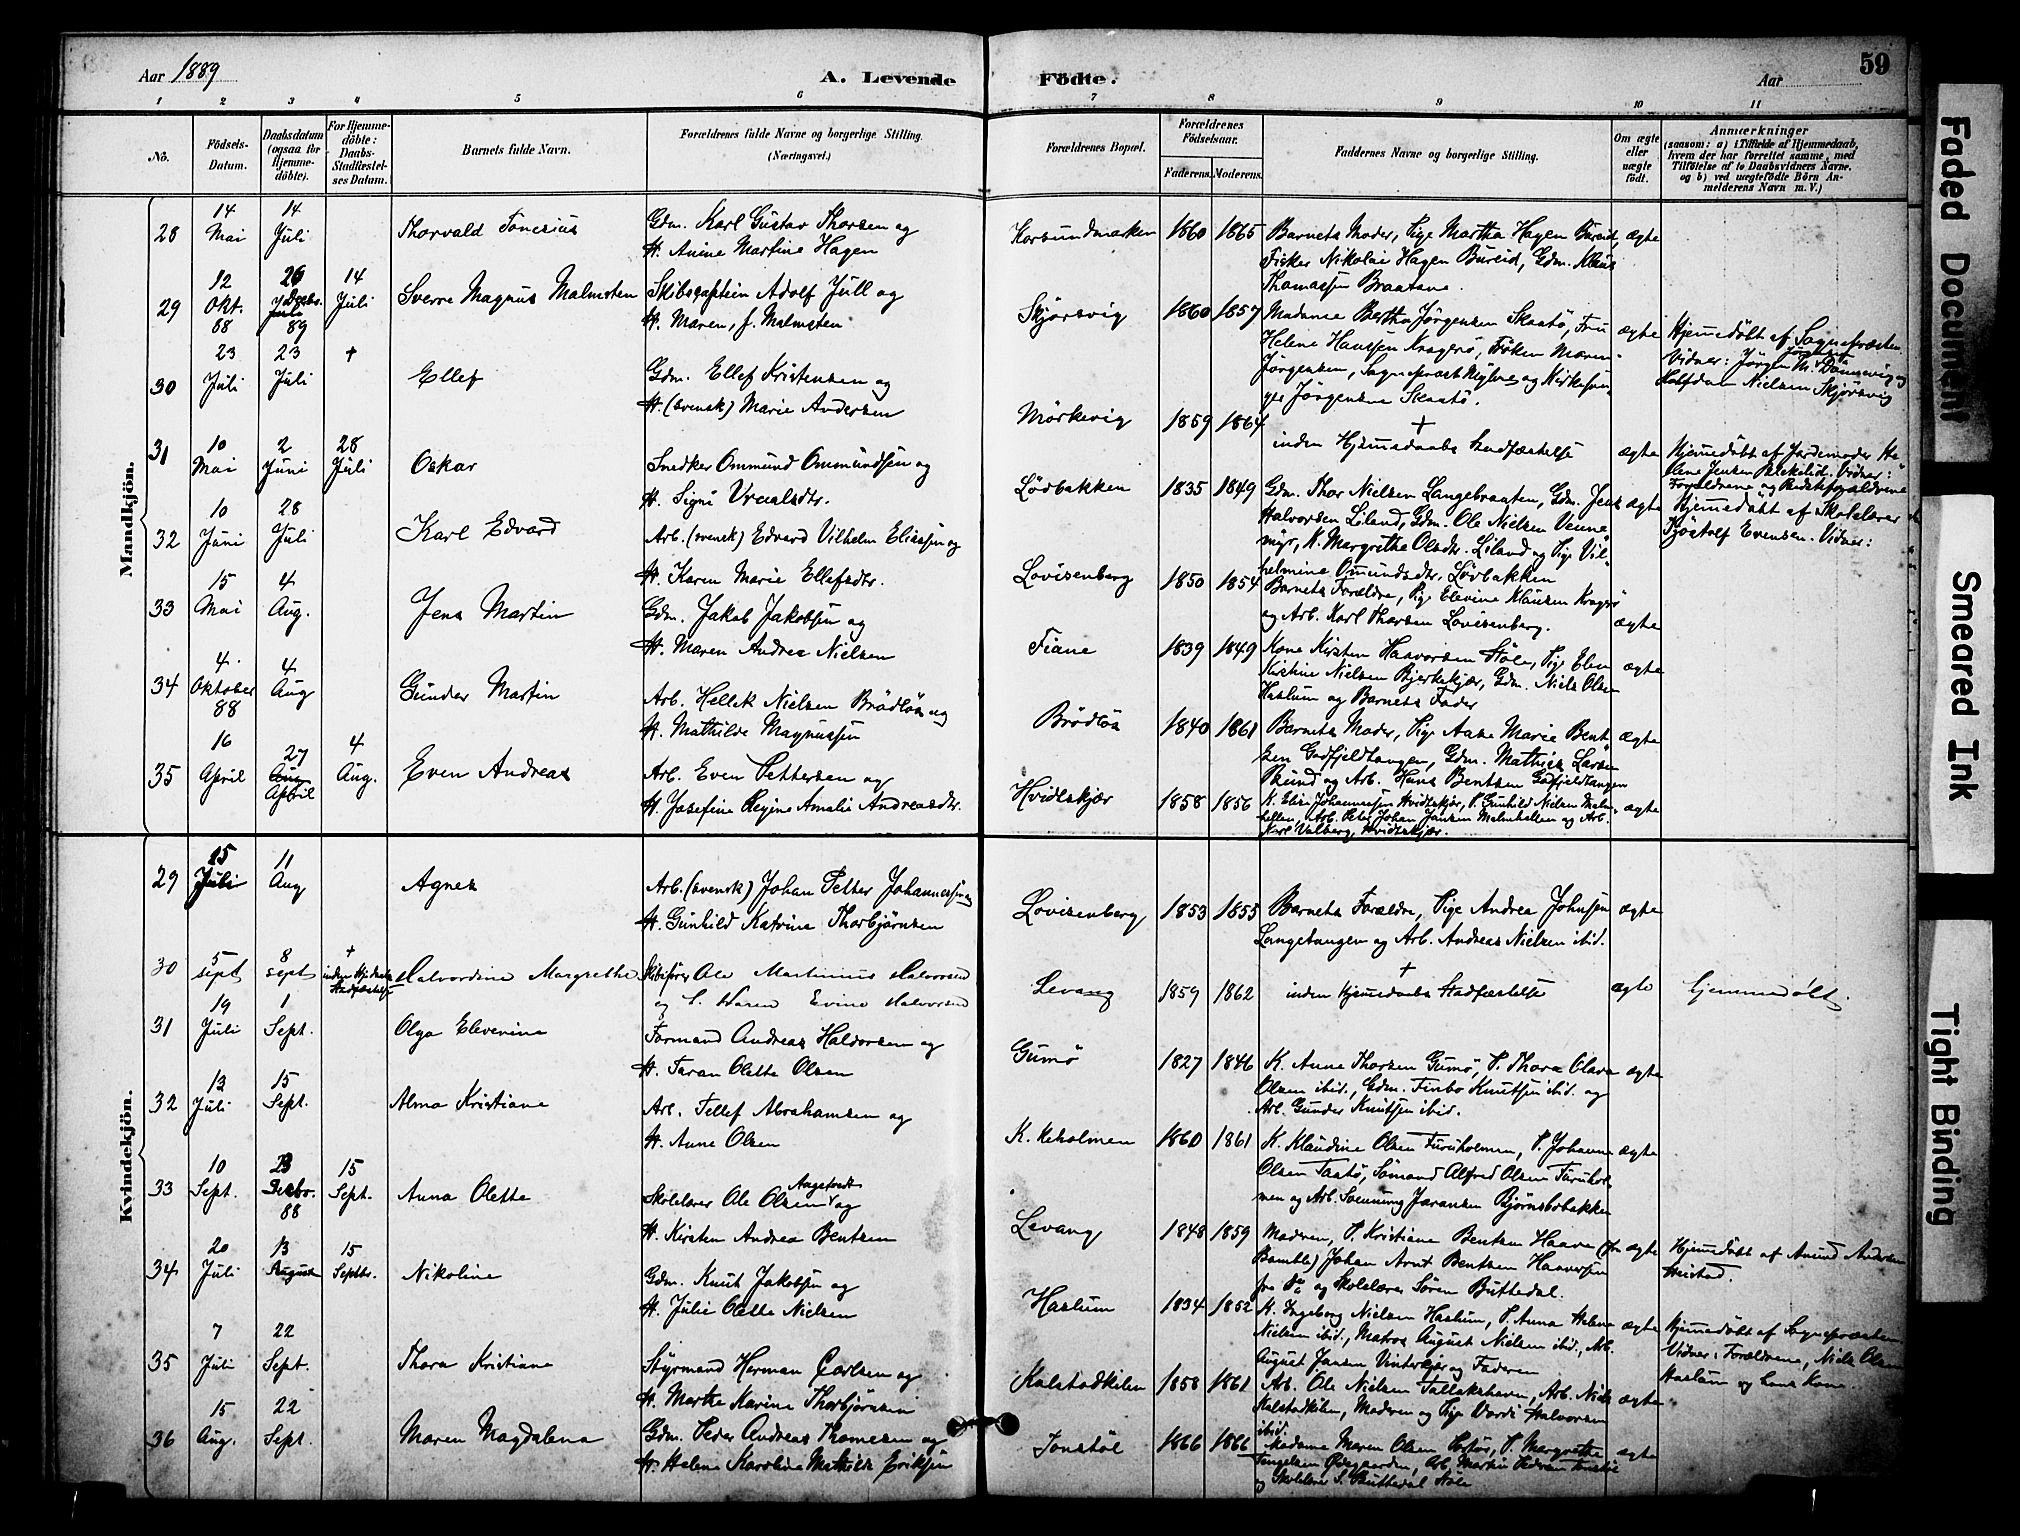 Aar 1889
A. Levende Födte.
Aar
59
1 2 3 4 5 6 7 8 9 10 11
No.
Födsels-Datum.
Daabsdatum (ogsaa for Hjemme-döbte).
For Hjemme-döbte: Daabs-Stadfæstel-ses Datum.
Barnets fulde Navn.
Forældrenes fulde Navne og borgerlige Stilling. (Næringsvei.)
Forældrenes Bopæl.
Forældrenes Födselsaar.
Faderens. Moderens.
Faddernes Navne og borgerlige Stilling.
Om ægte eller uægte födt.
Anmærkninger
(saasom: a) i Tilfælde af Hjemmedaab, hvem der har forrettet samme, med Tilföielse af to Daabsvidners Navne, og b) ved uægtefödte Börn Anmelderens Navn m. V.)
Mandkjön.
28 14 Mai 14 Juli Thorvald Tönesius
Gdm. Karl Gustav Thorsen og
H. Anine Martine Hagen
Korsundmarken 1860 1865
Barnets Moder, Pige Martha Hagen Bureid, ægte
Fisker Nikolai Hagen Bureid, Gdm. Klaus
Thomassen Braatane.
29 12 Okt. 88 26 Decbr. 14 Juli Sverre Magnus Malmsten
Skibscaptein Adolf Jull og
H. Maren, f. Malmsten
Skjörsvig 1860 1857
Madame Bertha Jørgensen Skaatö, Fru ægte
Helene Hanssen Kragerö, Fröken Maren
Jørgensen, Sogneprest og Kirkesan-
ger Jørgensen Skaatö.
Hjemmedöbt af Sognepræsten.
Vidner: Jørgen
Halfdan Nielsen Skjörsvig
30 23 Juli 23 Juli + Ellef
Gdm. Ellef Kristensen og
H. (svensk) Marie Andersen
Mörkevig 1859 1864
+
inden Hjemmedaabs Stadfæstelse ægte
Hjemmedöbt af Jordemoder
31 10 Mai 2 Juni 28 Juli Oskar
Snedker Ommund Ommundsen og
H. Signe Vraalsdtr.
Lövbakken 1835 1849
Gdm. Thor Nielsen Langebraaten, Gdm. Jens ægte
Halvorsen Liland, Gdm. Ole Nielsen Venne-
myr, K. Margrethe Olsdtr. Liland og Pige Vil-
helmine Omundsdtr. Lövbakken
Hjemmedöbt af Skolelærer
Kjöstolf Evensen. Vidner:
32 10 Juni 28 Juli Karl Edvard
Arb. (svensk) Edvard Vilhelm Eliassen og
H. Karen Marie Ellefsdtr.
Lovisenberg 1850 1854
Barnets Forældre, Pige Elevine Klausen Kragerö
og Arb. Karl Thorsen Lovisenberg. ægte
33 15 Mai 4 Aug. Jens Martin
Gdm. Jakob Jakobsen og
H. Maren Andrea Nielsen
Fiane 1839 1849
Kone Kirsten Haavorsen Stöle, Pige Elen ægte
Kirstine Nielsen Bjerkekjær, Gdm. Niels Olsen
Haslum og Barnets Fader
34 4 Oktober 88 4 Aug Gunder Martin
Arb. Hellek Nielsen Brödlös og
H. Mathilde Magnussen
Brödlös 1840 1861
Barnets Moder, Pige Aase Marie Bent- ægte
sen Gadfjeldtangen, Gdm. Mathias Larsen
og Arb. Hans Bentsen Gadfjeldtangen
35 16 April 27 Aug April 4 Aug. Even Andreas
Arb. Even Pettersen og
H. Josefine Regine Amalie Andreasdtr.
Hvidtskjær 1858 1856
K. Elise Johannessen Hvidtskjær, P. Gunhild Nielsen Malm- ægte
hellen, Arb. Peter Johan Jansen Malmhellen og Arb.
Karl Valberg, Hvidtskjær.
Kvindekjön.
29 15 Juli 11 Aug Agnes
Arb. (svensk) Johan Petter Johannessen og
H. Gunhild Katrine Thorbjörnsen
Lovisenberg 1853 1855
Barnets Forældre, Pige Andrea Johnsen ægte
Langetangen og Arb. Andreas Nielsen ibid.
30 5 sept 8 sept + inden Hjdaabs Stadfæstelse Halvordine Margrethe
Skibsfører Ole Martinius Halvorsen
og H. Karen Evine Halvorsen
Levang 1859 1862
+
inden Hjemmedaabs Stadfæstelse ægte
Hjemmedøbt.
31 19 Juli 1 Sept. Olga Elevenine
Formand Andreas Haldorsen og
H. Taran Olette Olsen
Gumö 1827 1846
K. Anne Thorsen Gumö, P. Thora Olava ægte
Olsen ibid., Gdm. Finbo Knutsen ibid. og
Arb. Gunder Knutsen ibid.
32 13 Juli 15 Sept. Alma Kristiane
Arb. Tellef Abrahamsen og
H. Anne Olsen
K. Keholmen 1860 1861
K. Klaudine Olsen Furuholmen, P. Johanne ægte
Olsen Taatö, Sömand Alfred Olsen Furuhol-
men og Arb. Svennung Jaransen Bjørnsbobakken
33 10 Sept. 23 Decbr. 88 15 Sept. Anna Olette
Skolelærer Ole Olsen Aagefredt og
H. Kirsten Andrea Bentsen
Levang 1848 1859
Moderen, P. Kristiane Bentsen Haave (fra ægte
Bamble) Johan Arnt Bentsen Haaversen
fra do og Skolelærer Sören Buttedal.
Hjemmedöbt af Amund Andersen
34 20 Juli 13 August 15 Septbr. Nikoline
Gdm. Knut Jakobsen og
H. Julie Olette Nielsen
Haslum 1834 1852
K. Ingeborg Nielsen Haslum, P. Anna Helene ægte
Nielsen ibid., Matros August Nielsen ibid., Arb.
August Jansen Vinterkjær og Faderen
Hjemmedöbt af Sognepræsten
Vidner: Forældrene, Niels Olsen
Haslum og hans Kone.
35 7 Juli 22 Sept. Thora Kristiane
Styrmand Herman Carlsen og
H. Marthe Karine Thorbjörnsen
Kalstadkilen 1858 1861
Arb. Ole Nielsen Tallakshavn, Arb. Niels ægte
Kalstadkilen, Moderen og Pige Vardi Halvorsen
ibid.
36 15 Aug. 22 Sept. Maren Magdalena
Gdm. Peder Andreas Thomesen og
H. Helene Karoline Mathilde Eriksen
Tonstöl 1866 1866
Madame Maren Olsen Portör, P. Margrethe ægte
Tengelsen Ödegaarden, Arb. Martin Pedersen
og Skolelærer S. Buttedal Stöle
Faded Document
Smeared Ink
Tight Binding